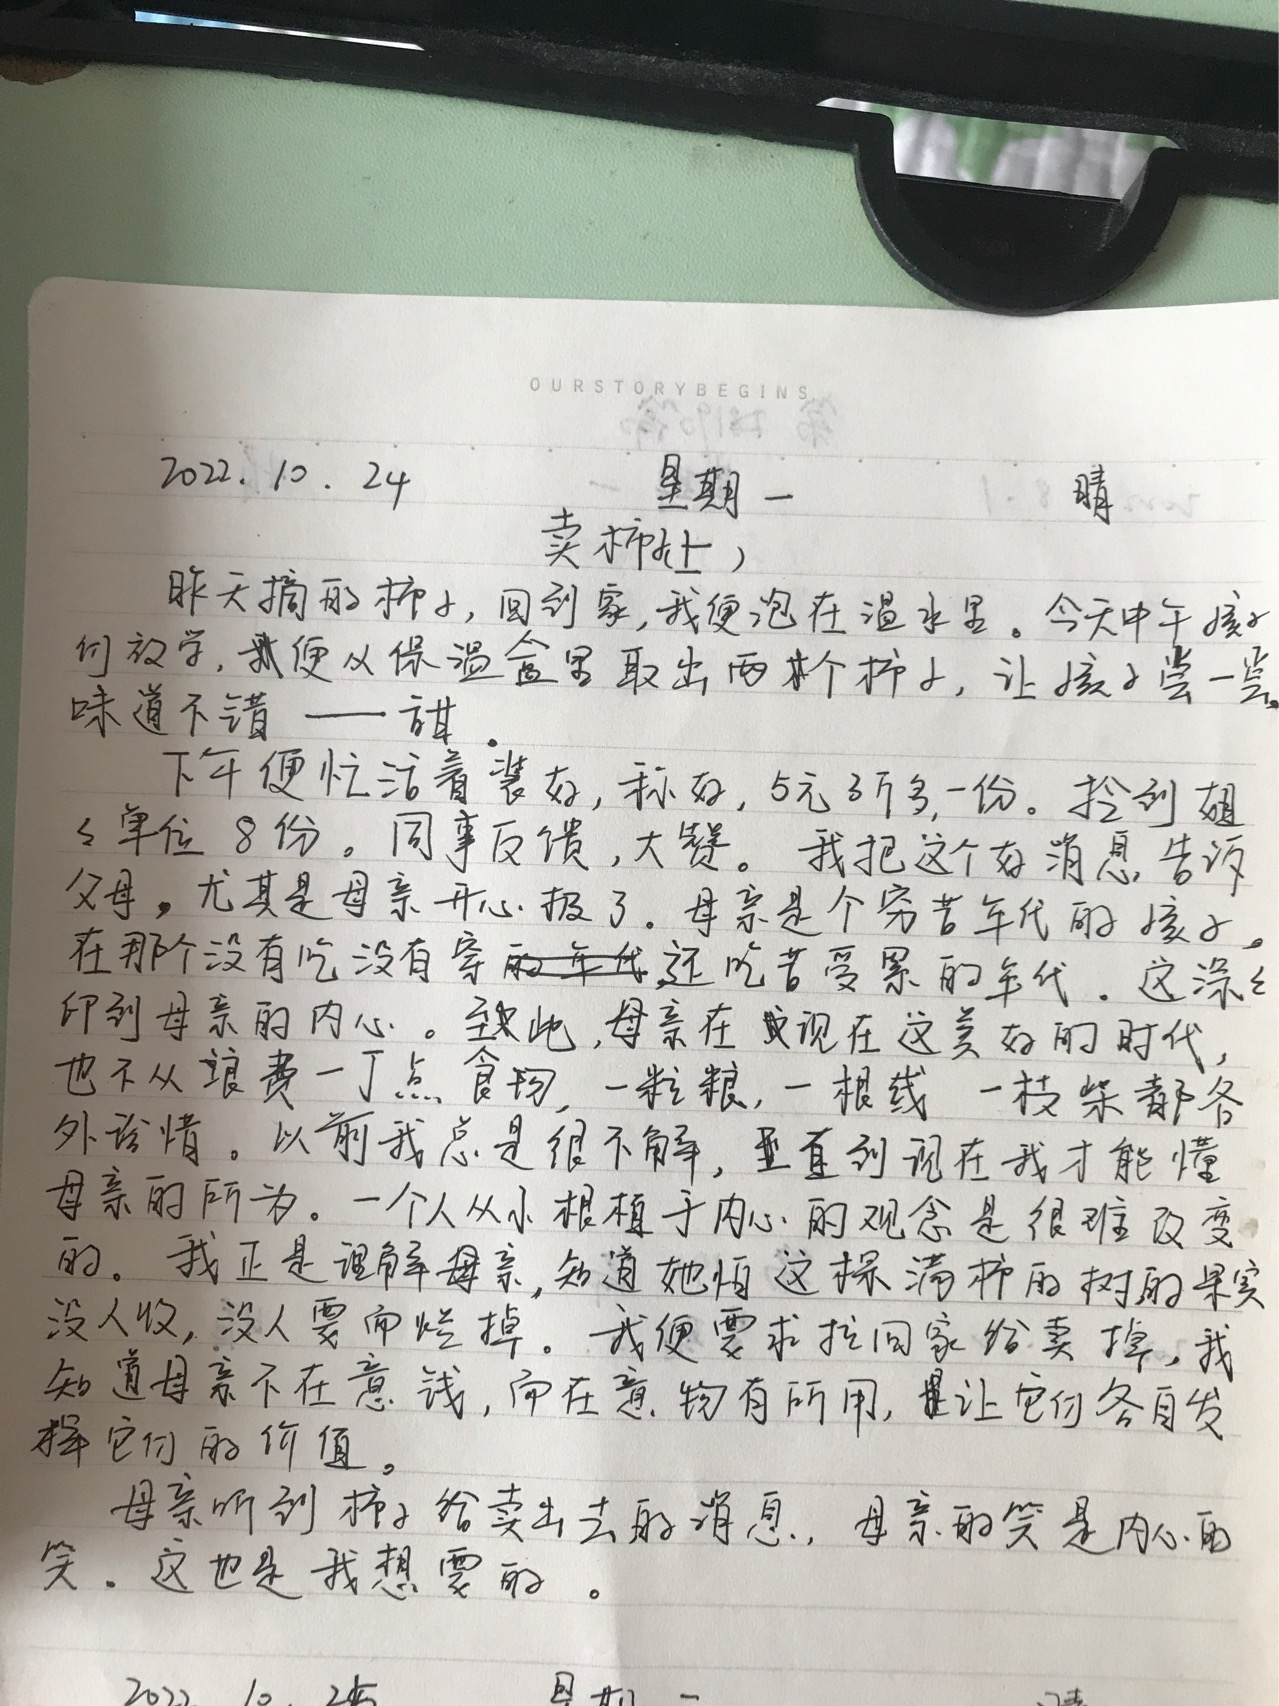 OURSTORYBEGINS
2022.10.24 星期一 晴
卖柿(上)
昨天摘的柿子,回到家,我便泡在温水里。今天中午孩子
们放学,我便从保温盒里取出两个柿子,让孩子尝一尝。
味道不错——甜。
下午便忙活着装好,称好,5元3斤多一份。拎到姐
々单位8份。同事反馈,大赞。我把这个好消息告诉
父母。尤其是母亲开心极了。母亲是个穷苦年代的孩子。
在那个没有吃没有穿,还吃苦受累的年代。这深々
印到母亲的内心。至此,母亲在现在这美好的时代,
也不从浪费一丁点食物,一粒粮,一根线 一枝柴都各
外诊惜。以前我总是很不解,直到现在我才能懂
母亲的所为。一个人从小根植于内心的观念是很难改变
的。我正是理解母亲,知道她怕这棵满柿的树的果实
没人收,没人要而烂掉。我便要求拉回家给卖掉,我
知道母亲不在意钱,而在意物有所用,让它们各自发
挥它们的价值。
母亲听到柿子给卖出去的消息,母亲的笑是内心的
笑。这也是我想要的。
2022.10.25 星期二 晴